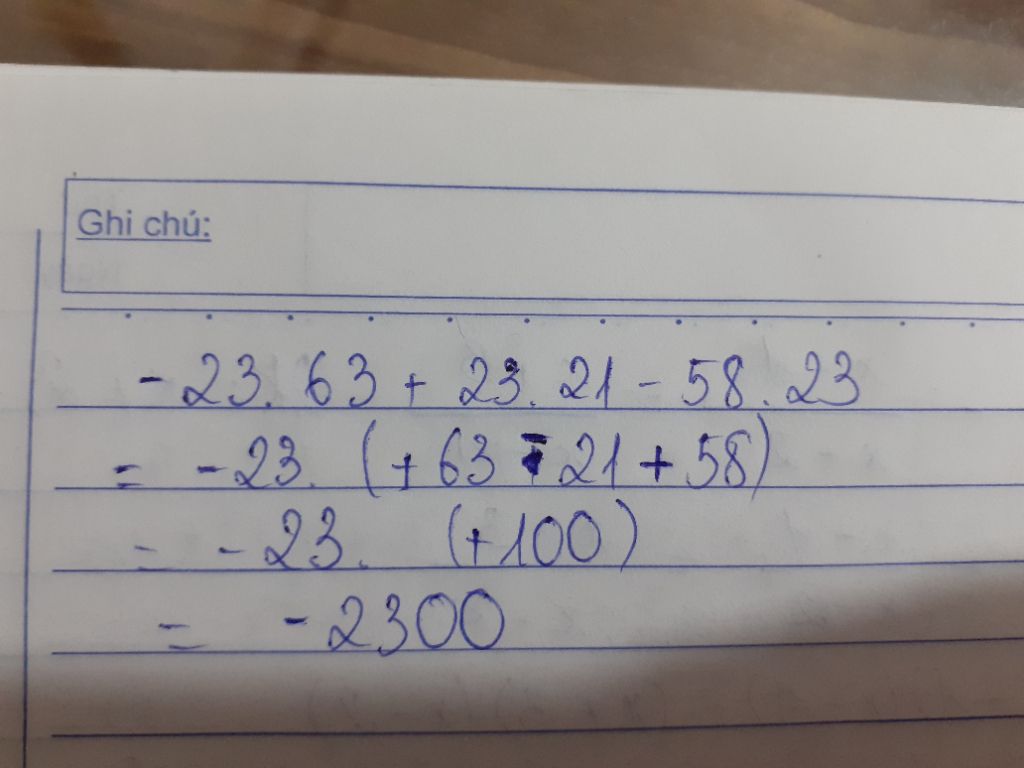 Ghi chú:
-23.63 + 23.21 - 58.23
= -23. (+63 - 21 + 58)
= -23. (+100)
= -2300